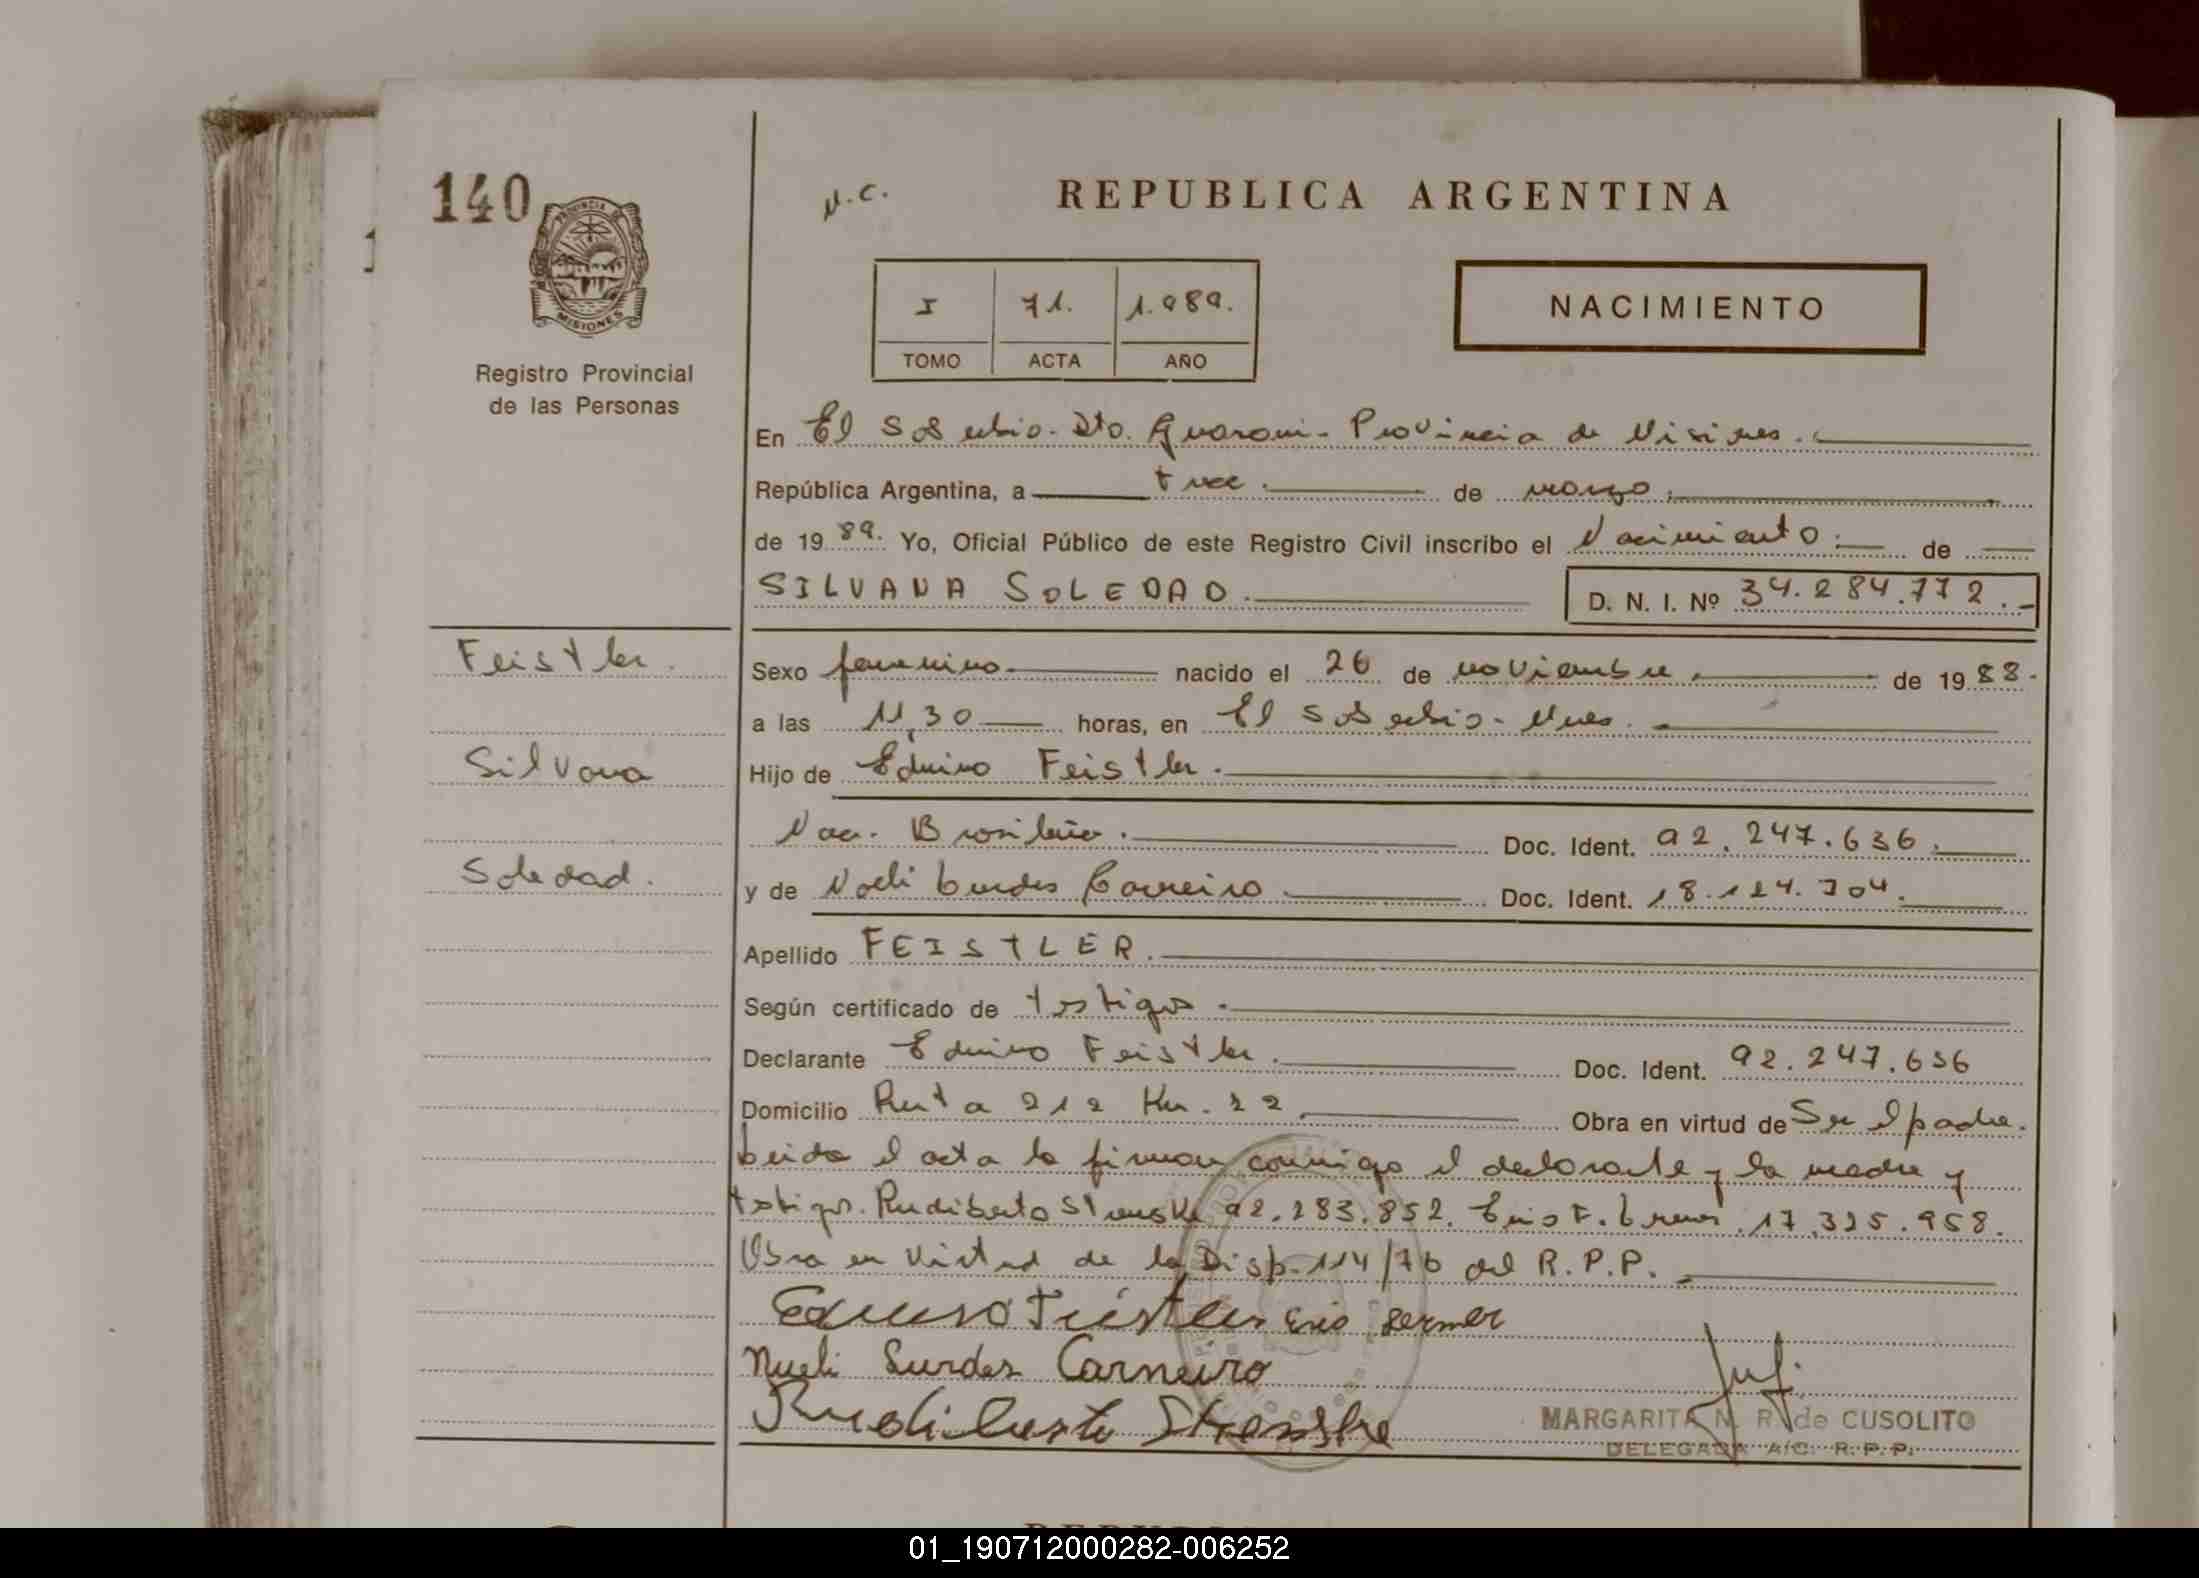 140
N.C.
REPUBLICA ARGENTINA
PROVINCIA DE
MISIONES
Registro Provincial
de las Personas
I 71. 1.989.
TOMO ACTA AÑO
NACIMIENTO
En El Soberbio. Dto. Guarani - Provincia de Misiones.
República Argentina, a trece. de marzo.
de 19 89. Yo, Oficial Público de este Registro Civil inscribo el Nacimiento. de
SILVANA SOLEDAD. D. N. I. Nº 34.284.772.
Feistler.
Silvana
Soledad.
Sexo femenino nacido el 26 de noviembre. de 19 88.
a las 11,30 horas, en El Soberbio - Mnes.
Hijo de Edwino Feistler.
Nac. Brasileña. Doc. Ident. 92.247.636.
y de Noeli Lurdes Carneiro Doc. Ident. 18.124.704.
Apellido FEISTLER.
Según certificado de testigos.
Declarante Edwino Feistler. Doc. Ident. 92.247.636
Domicilio Ruta 212 Km. 22 Obra en virtud de Ser el padre.
Leida el acta la firman conmigo el declarante y la madre y
testigos. Rudiberto 92.283.852. 17.325.958.
Obra en virtud de la Disp. 114/76 del R.P.P.
Lurdes Carneiro
MARGARITA N. R. de CUSOLITO
DELEGADA A/C. R. P. P.
01_190712000282-006252